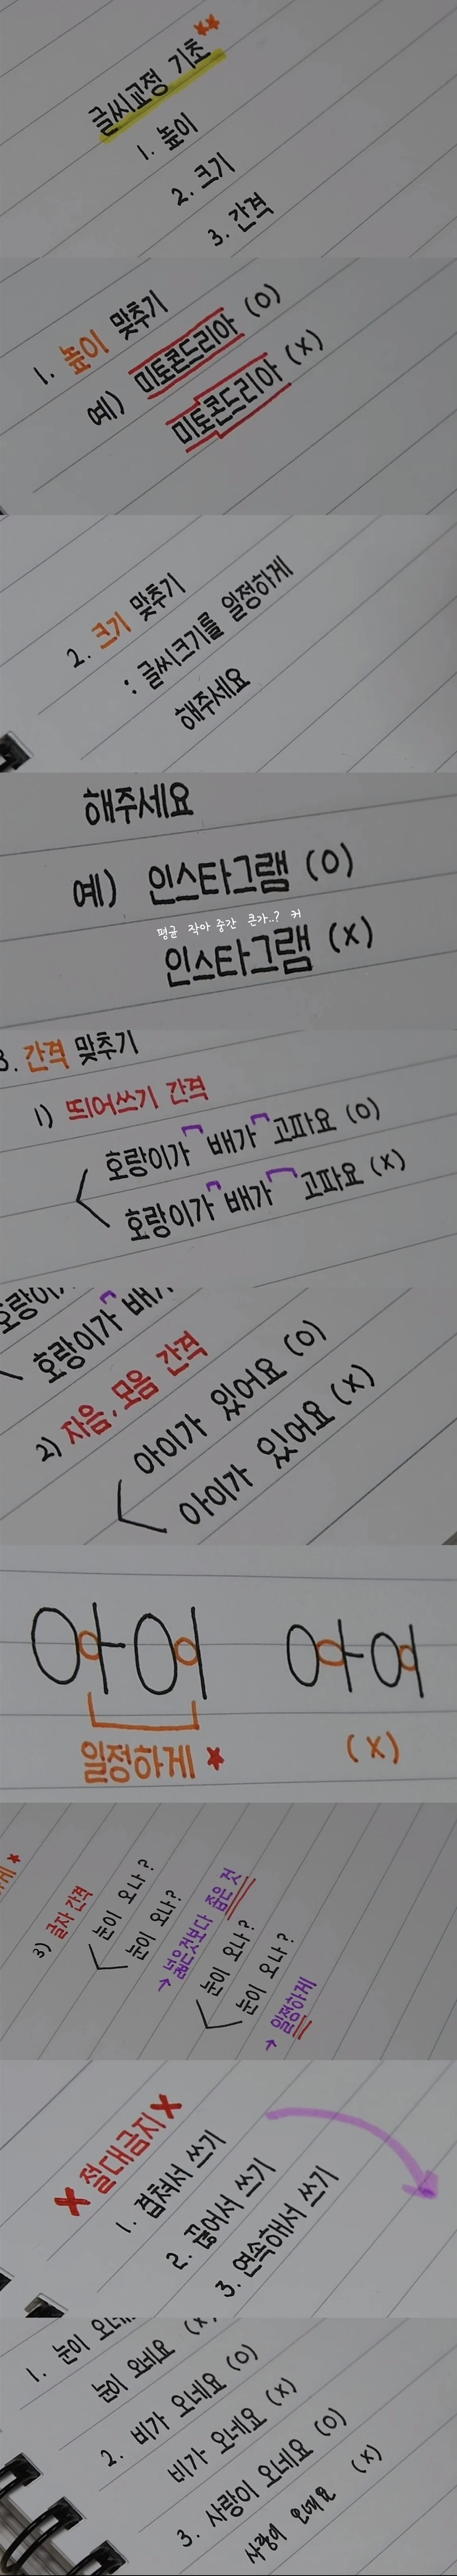 글씨교정 기초**
1. 높이
2. 크기
3. 간격
1. 높이 맞추기
예) 미토콘드리아 (O)
미토콘드리아 (X)
2. 크기 맞추기
: 글씨크기를 일정하게
해주세요
해주세요
예) 인스타그램 (O)
평균 작아 중간 큰가..? 커
인스타그램 (X)
3. 간격 맞추기
1) 띄어쓰기 간격
호랑이가 배가 고파요 (O)
호랑이가 배가 고파요 (X)
호랑이가 배가
2) 자음, 모음 간격
아이가 있어요 (O)
아이가 있어요 (X)
아이 아이
일정하게 ★ (X)
3) 글자 간격
눈이 오나?
눈이 오나?
↑ 넓은것보다 좁은 것
눈이 오나?
눈이 오나?
↑ 일정하게
X 절대금지 X
1. 겹쳐서 쓰기
2. 끊어서 쓰기
3. 연속해서 쓰기
1. 눈이 오네
눈이 오네요 (X)
2. 비가 오네요 (O)
비가 오네요 (X)
3. 사랑이 오네요 (O)
사랑이 오네요 (X)